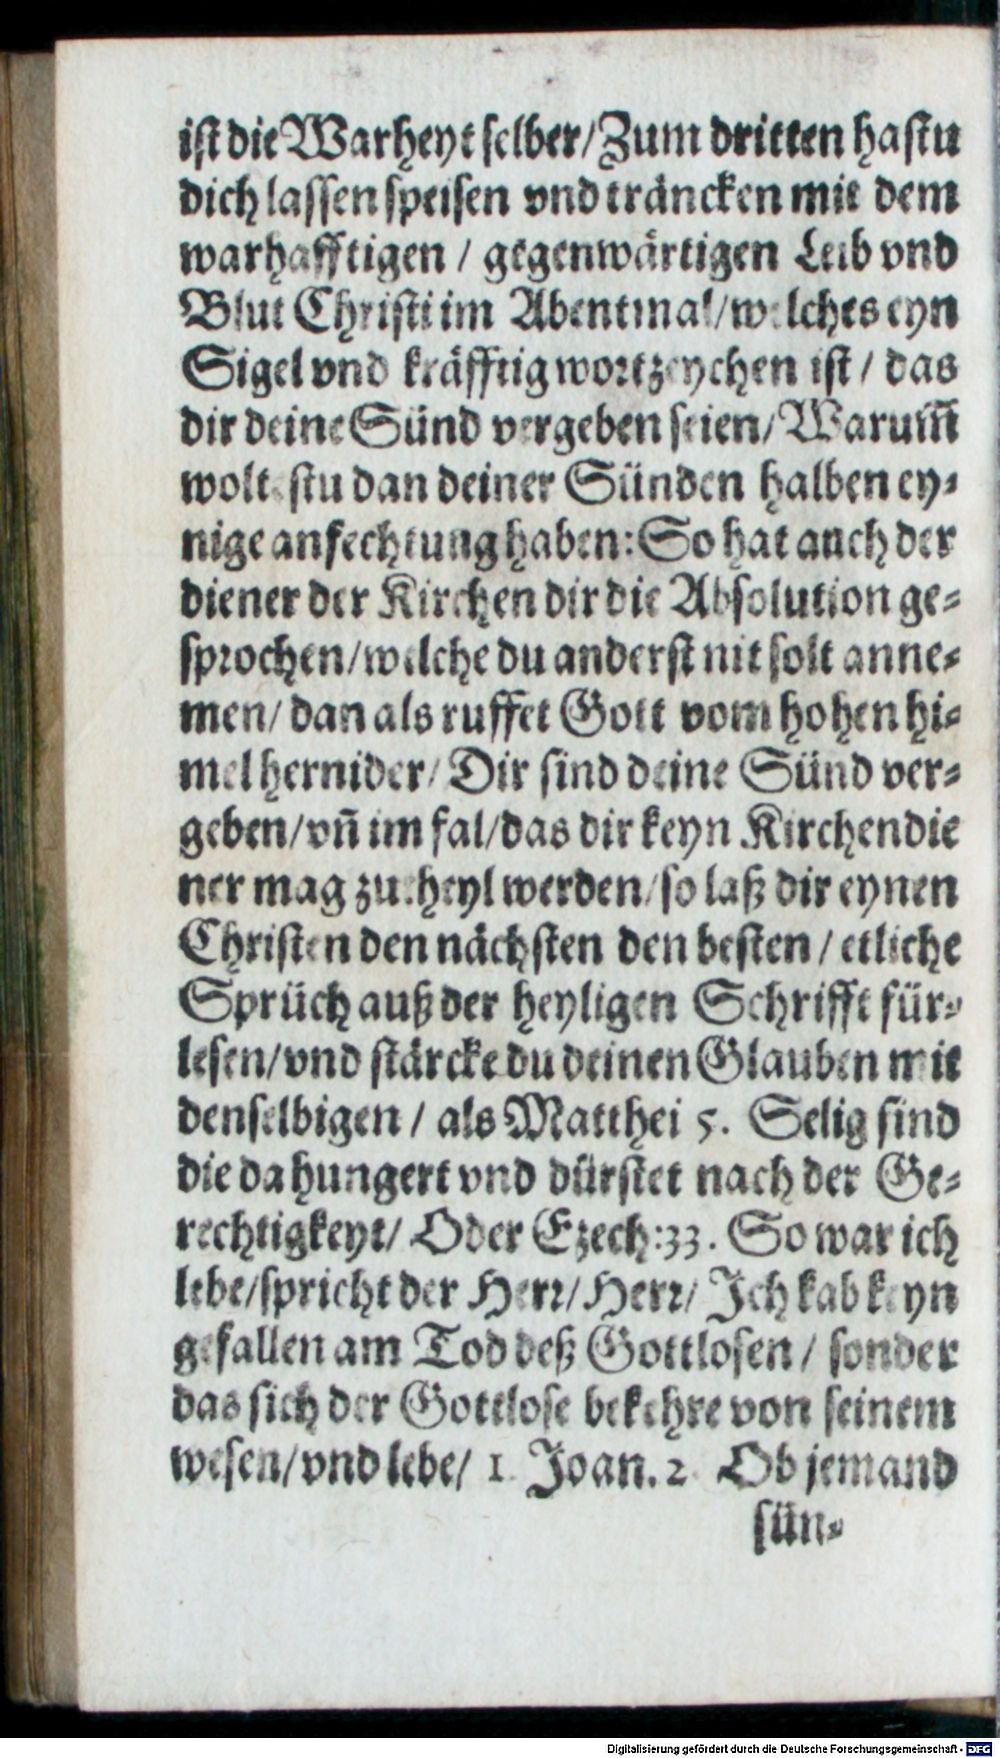 ist die Warheyt selber/Zum dritten hastu
dich lassen speisen vnd träncken mit dem
warhafftigen / gegenwärtigen Leib vnd
Blut Christi im Abentmal/welches eyn
Sigel vnd kräfftig wortzeychen ist / das
dir deine Sünd vergeben seien/Warum̃
woltestu dan deiner Sünden halben ey-
nige anfechtung haben: So hat auch der
diener der Kirchen dir die Absolution ge-
sprochen/welche du anderst nit solt anne-
men/ dan als ruffet Gott vom hohen hi-
mel hernider/ Dir sind deine Sünd ver-
geben/vñ im fal/das dir keyn Kirchendie
ner mag zu theyl werden/so laß dir eynen
Christen den nächsten den besten / etliche
Sprüch auß der heyligen Schrifft für-
lesen/vnd stärcke du deinen Glauben mit
denselbigen / als Matthei 5. Selig sind
die da hungert vnd dürstet nach der Ge-
rechtigkeyt/ Oder Ezech:33. So war ich
lebe/spricht der Herr/Herr/ Ich kab keyn
gefallen am Tod deß Gottlosen / sonder
das sich der Gottlose bekehre von seinem
wesen/vnd lebe/ 1. Joan. 2. Ob jemand
sün-
Digitalisierung gefördert durch die Deutsche Forschungsgemeinschaft - DFG